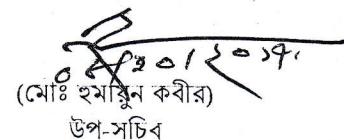 (মোঃ হুমায়ুন কবীর)
উপ-সচিব